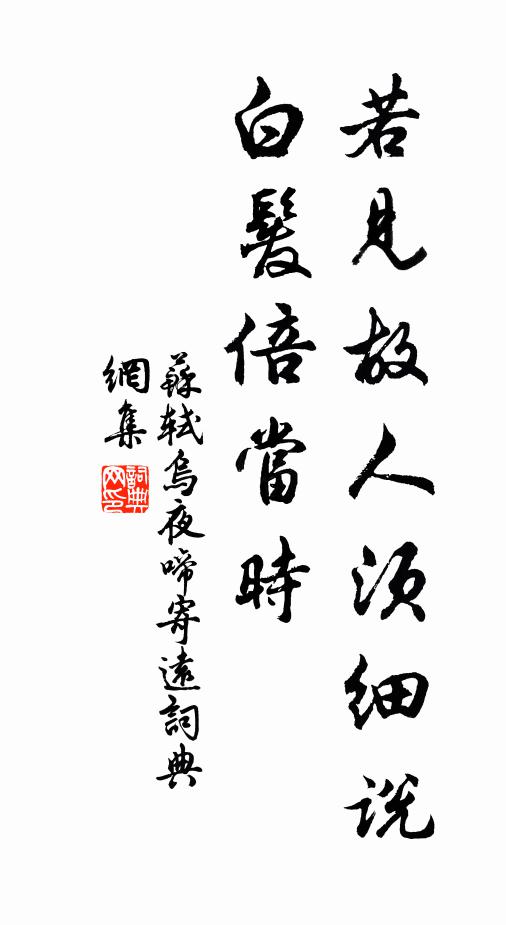 若見故人須細說
白髮倍當時
蘇軾烏夜啼寄遠詞典
網集
詞典網印